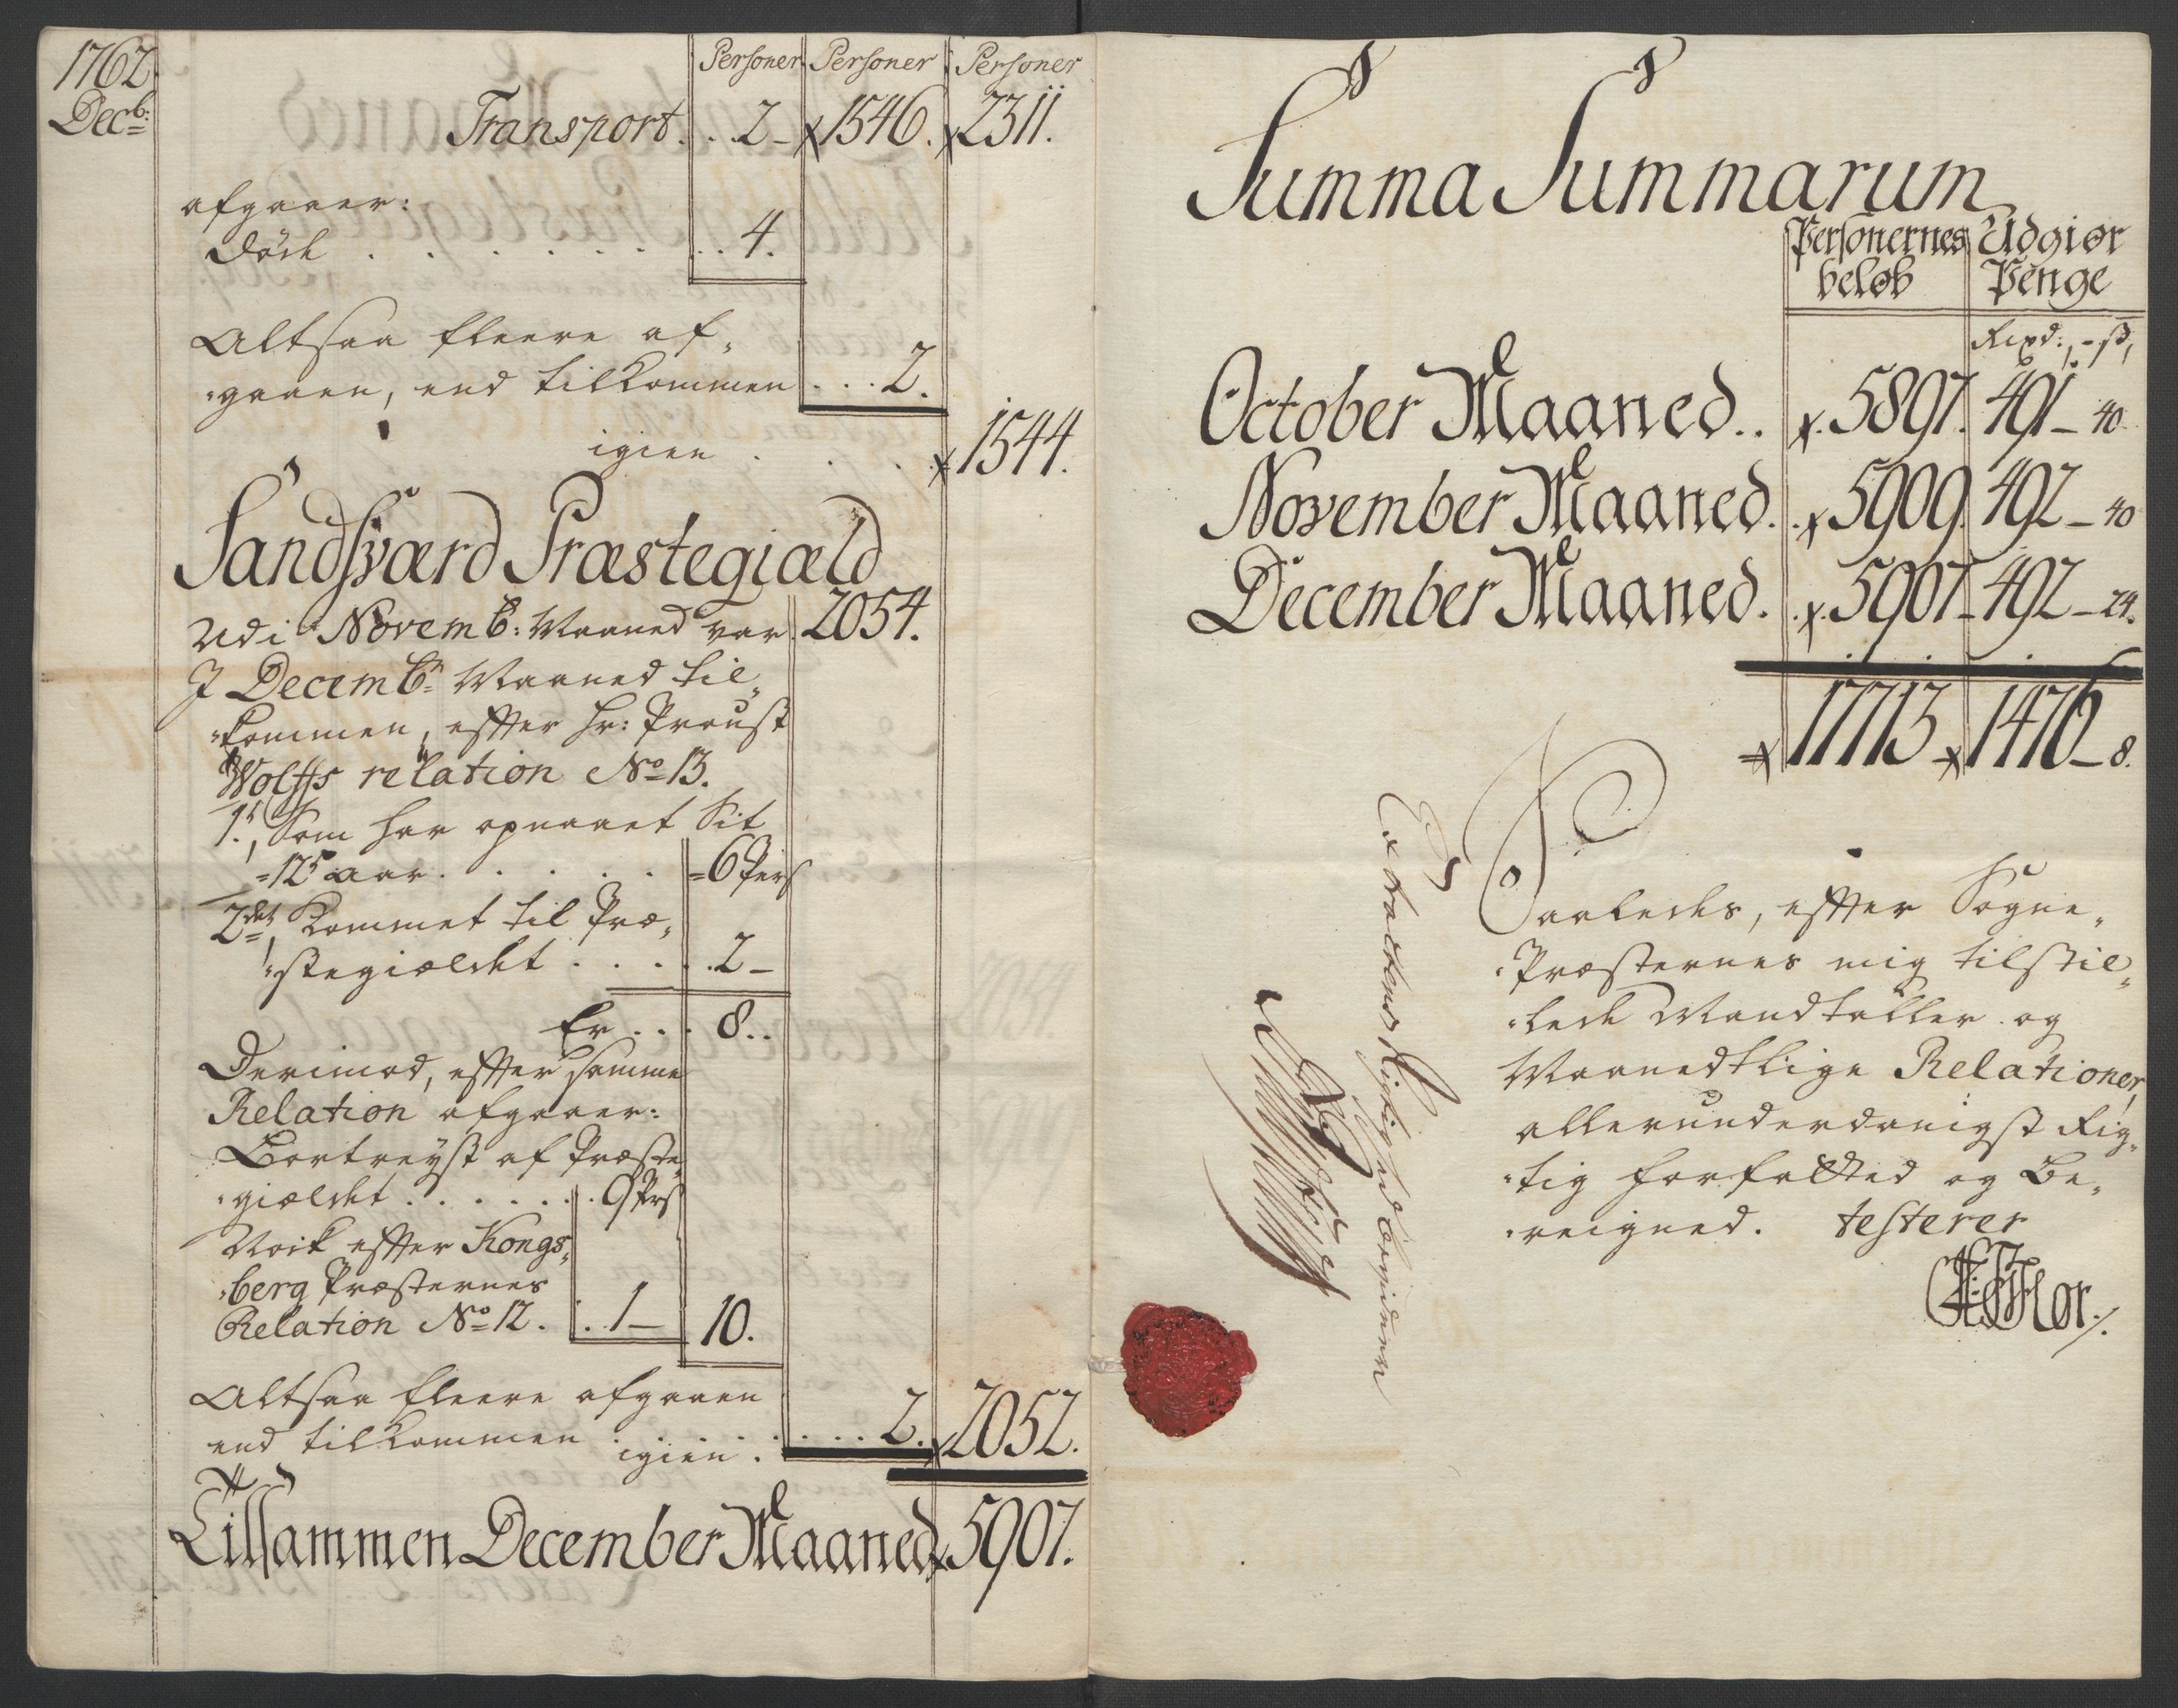 1762
Decb:
Personer Personer Personer
Transport. . . 2 - 1546. 2311.
afgaaer:
Døde . . . . . . . . 4.
Altsaa fleere af-
gaaen, end tilkommen . . . 2.
igien . . . 1544.
Sandsværd Præstegiæld
Udi Novemb: Maaned var 2054.
I Decembr Maaned til-
kommen, effter Hr: Proust
Wolffs relation No 13.
1., Som har opnaaet Sit
12te aar. . . . . . 6 Pers
2det, Kommet til Præ-
stegiældet . . . . . 2 -
Er . . . 8..
Derimod, effter samme
Relation afgaaer:
Bortreyst af Præste-
giældet . . . . . . . 9 Prs
Noik effter Kongs-
berg Præsternes
Relation No 12. . . 1 - 10.
Altsaa fleere afgaaen
end tilkommen . . . . . . . . 2.
igien . 2052.
Tilsammen December Maaned 5907.
Summa Summarum
Personernes Udgiør
beløb Penge
Rixd:, - ß,
October Maaned . . 5897. 491 - 40
November Maaned. . 5909. 492 - 40
December Maaned. . 5907 - 492 - 24.
17713 1476 - 8.
Saaledes, effter Sogne-
Præsternes mig tilstil-
lede Mandtaller og
Maanedtlige Relationer,
allerunderdanigst Rig-
tig forfatted og Be-
reigned. testerer
Flor ./.
Extractens Rigtighed